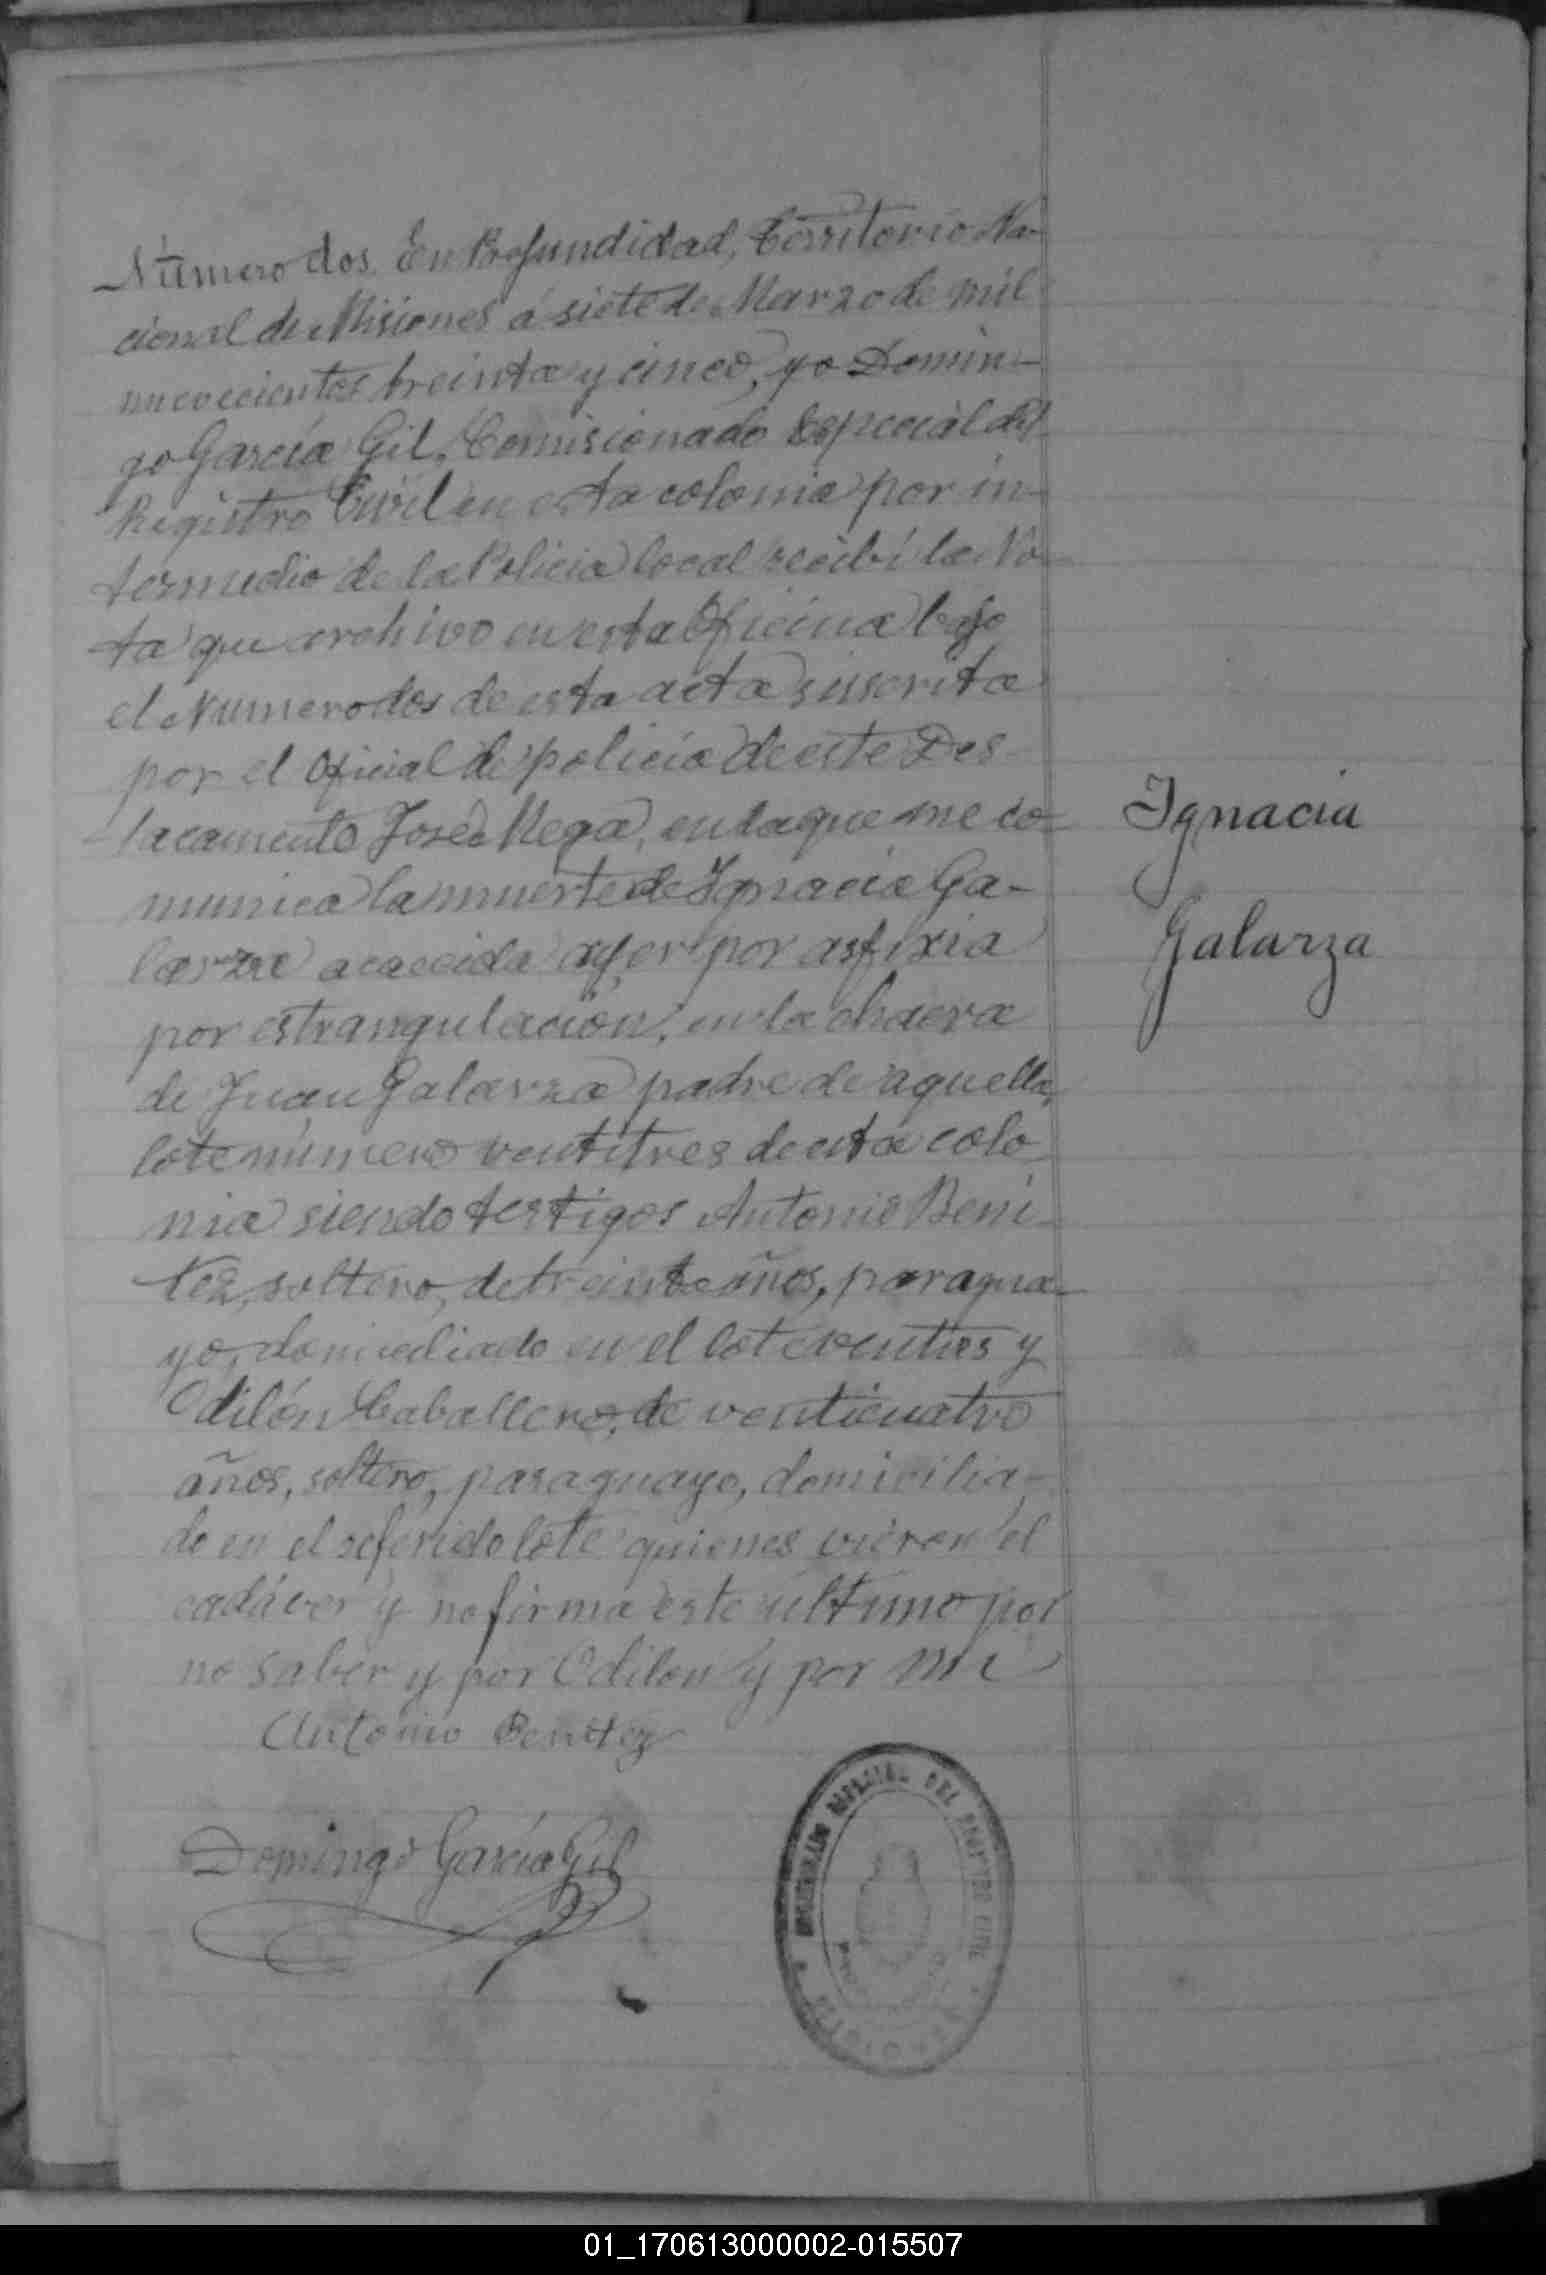 Número dos. En Profundidad, Territorio Na-
cional de Misiones á siete de Marzo de mil
novecientos treinta y cinco, yo Domin-
go García Gil, Comisionado Especial del
Registro Civil en esta colonia por in-
termedio de la Policia local recibí la No-
ta que archivo en esta Oficina bajo
el Numero dos de esta acta suscrita
por el Oficial de policía de este Des
tacamento José Mega, en la que me co-
munica la muerte de Ignacia Ga-
larza acaecida ayer por asfixia
por estrangulación, en la chacra
de Juan Galarza padre de aquella,
lote número ventitres de esta colo
nia siendo testigos Antonio Bení-
tez, soltero, de treinta años, paragua-
yo, domiciliado en el lote ventres y
Odilón Caballero, de venticuatro
años, soltero, paraguayo, domicilia-
do en el referido lote quienes vieron el
cadáver y no firma este ultimo por
no saber y por Odilon y por mi
Antonio Benitez
Domingo García Gil
Ignacia
Galarza
ESPECIAL DEL REGISTRO CIVIL
01_170613000002-015507